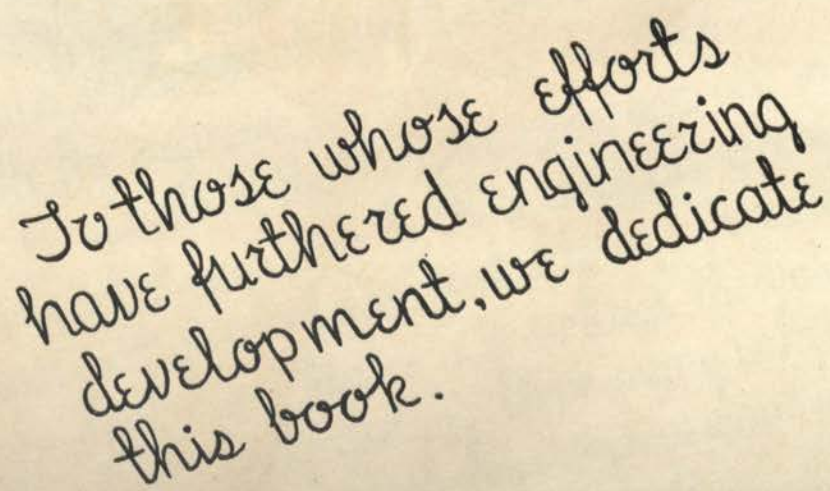 To those whose efforts
have furthered engineering
development, we dedicate
this book.